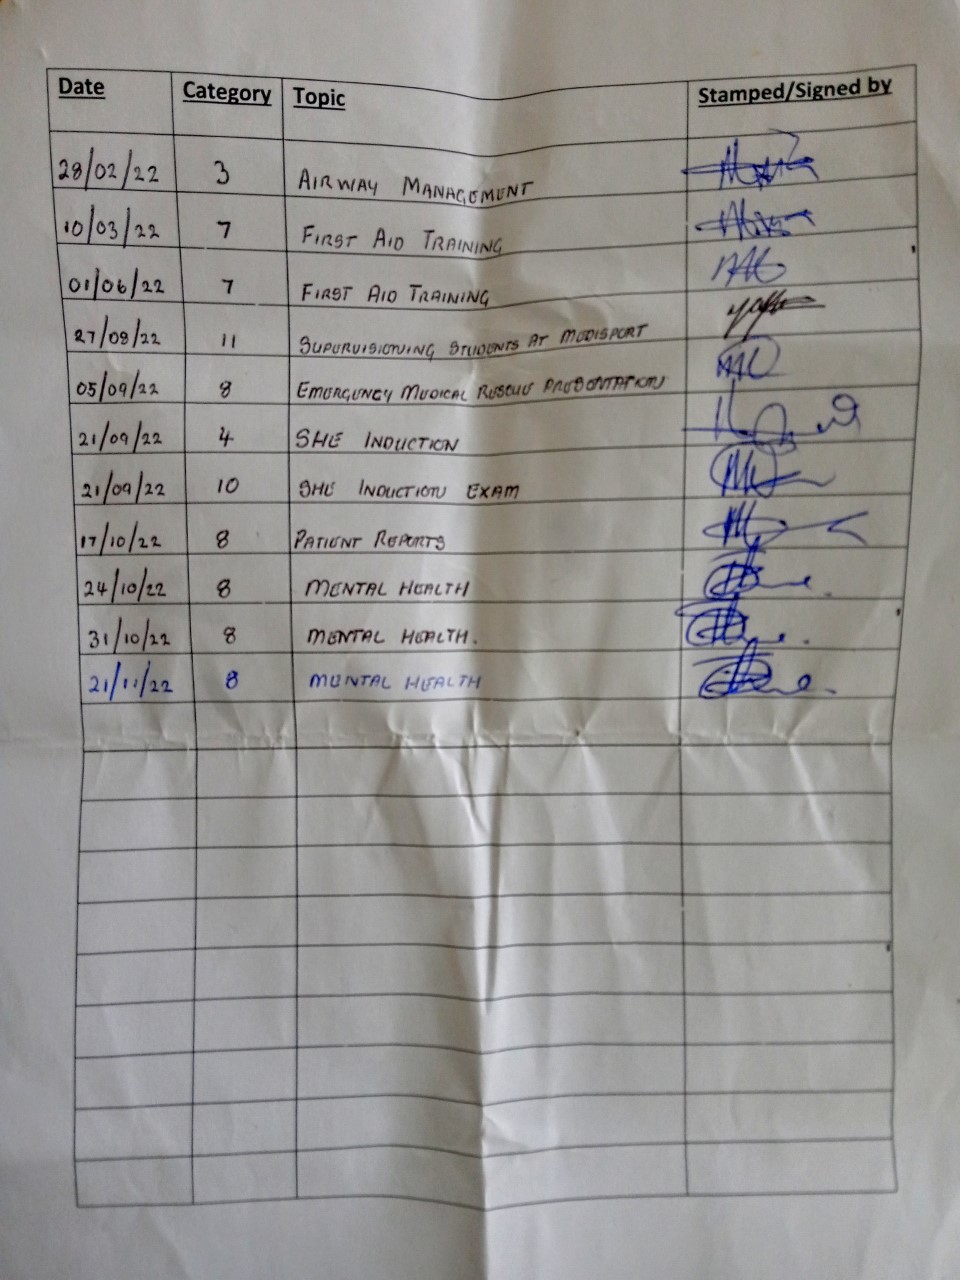 Date Category Topic Stamped/Signed by
28/02/22 3 AIRWAY MANAGEMENT
10/03/22 7 FIRST AID TRAINING
01/06/22 7 FIRST AID TRAINING
27/08/22 11 SUPERVISIONING STUDENTS AT MEDISPORT
05/09/22 8 EMERGENCY MEDICAL RESCUE PRESENTATION
21/09/22 4 SHE INDUCTION
21/09/22 10 SHE INDUCTION EXAM
17/10/22 8 PATIENT REPORTS
24/10/22 8 MENTAL HEALTH
31/10/22 8 MENTAL HEALTH.
21/11/22 8 MENTAL HEALTH